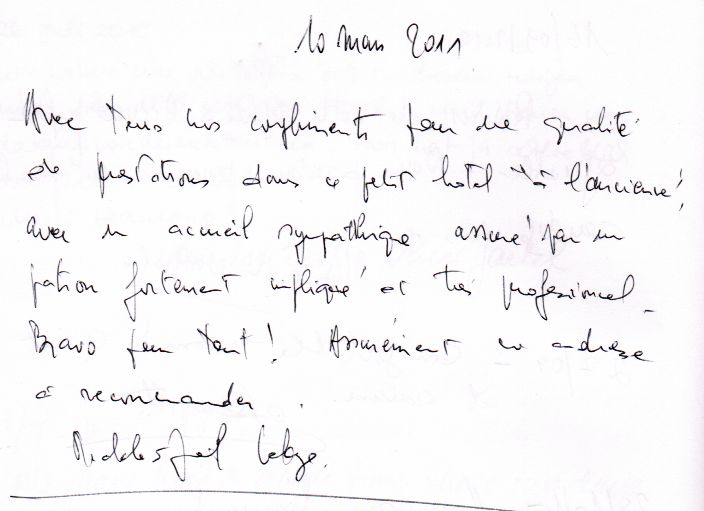 10 Mars 2011
Avec tous nos compliments pour une qualité
de prestations dans ce petit hotel "à l'ancienne"
avec un accueil sympathique assuré par un
patron fortement impliqué et très professionnel.
Bravo pour tout ! Assurément une adresse
à recommander.